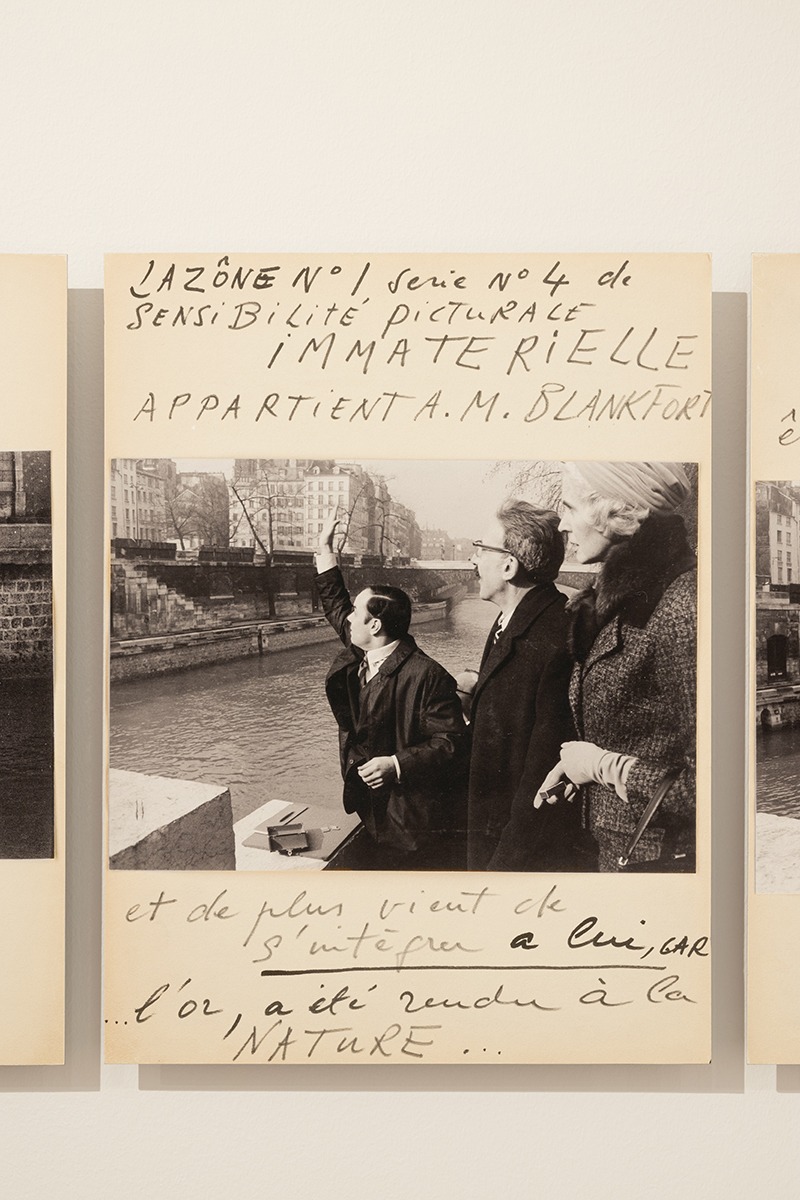 LAZÔNE N° 1 serie N° 4 de
SENSIBILITÉ PICTURALE
IMMATERIELLE
APPARTIENT A. M. BLANKFORT
et de plus vient de
s'intégrer a lui, CAR
...l'or, a été rendu à la
NATURE ...